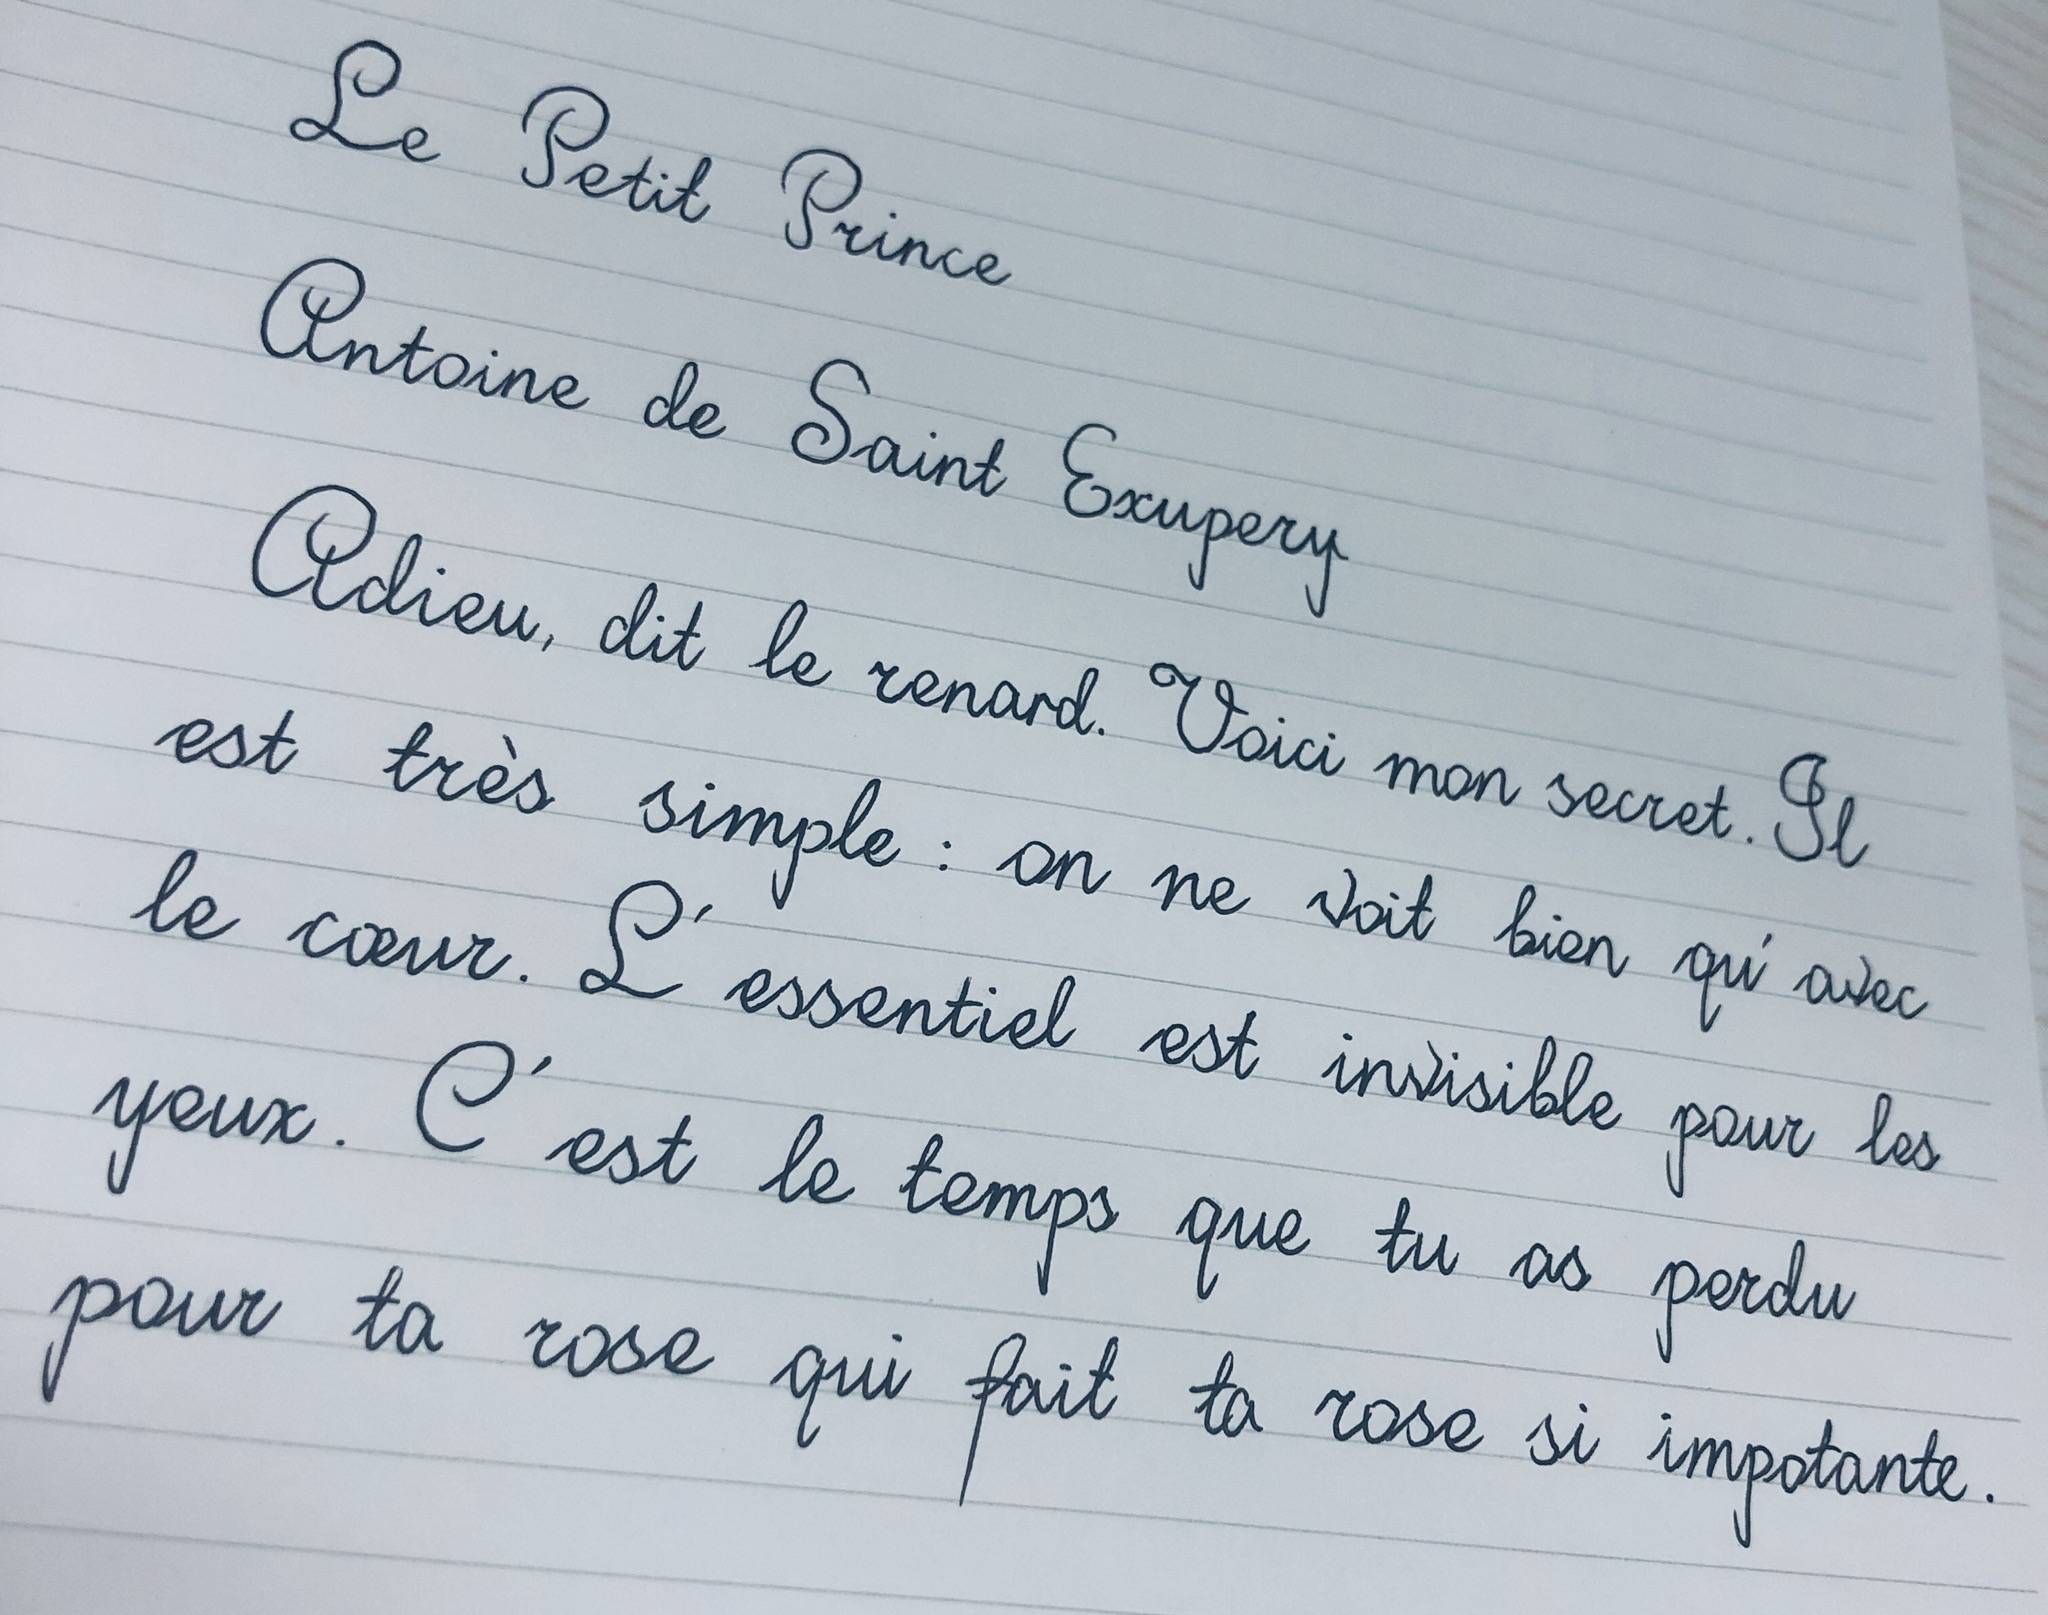 Le Petit Prince
Antoine de Saint Exupery
Adieu, dit le renard. Voici mon secret. Il
est très simple : on ne voit bien qu'avec
le cœur. L'essentiel est invisible pour les
yeux. C'est le temps que tu as perdu
pour ta rose qui fait ta rose si impotante.